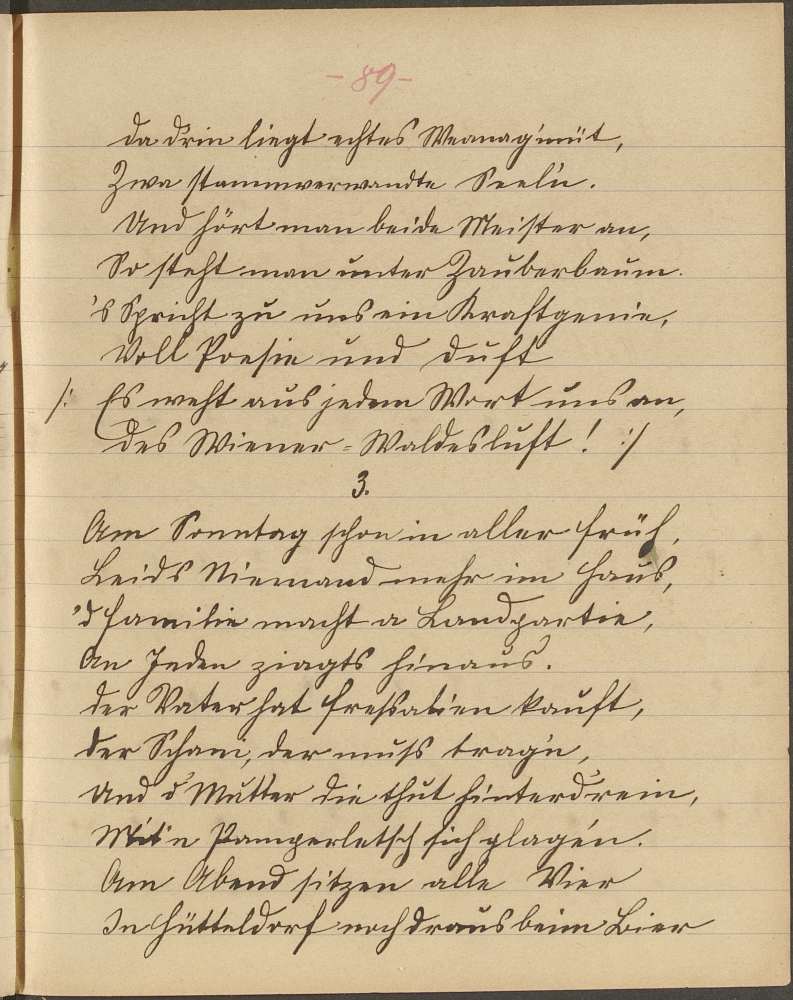 - 89 -
Da d'rin liegt echtes Weanag'müt,
Zwa stammverwandte Seel'n.
Und hört man beide Meister an,
So steht man unter Zauberbaum.
's Spricht zu uns ein Kraftgenie,
Voll Poesie und Duft
/: Es weht aus jedem Wort uns an,
Des Wiener-Waldesluft! :/
3.
Am Sonntag schon in aller Früh,
Leids Niemand mehr im Haus,
'd Familie macht a Landpartie,
An Jeden ziagts hinaus.
Der Vater hat Fressalien kauft,
Der Schani, der muss trag'n,
Und d' Mutter die thut hinterd'rein,
Mit'n Pamperletsch sich plagen.
Am Abend sitzen alle Vier
In Hütteldorf noch draus beim Bier